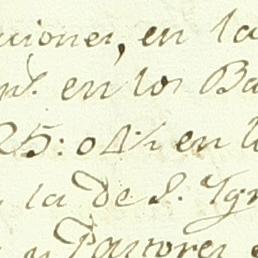 ciones, en la
en los Ba
25: 04½ en l
la de S. Ygn
y Pastores